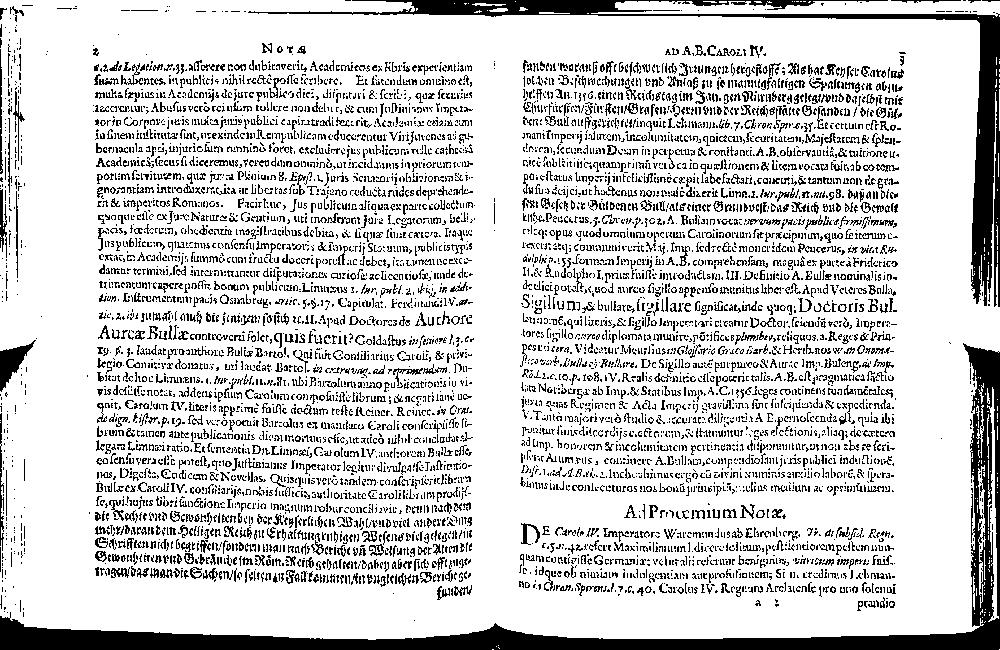 2 NOTÆ
c.2. de Legation. n.33. asserere non dubitaverit, Academicos ex libris experientiam
suam habentes, in publicis nihil rectè posse scribere. Et fatendum omnino est,
multa sæpius in Academijs de jure publico dici, disputari & scribi, quæ
tacerentur; Abusus verò rei usum tollere non debet, & cum Justinianus Impera-
tor in Corpore juris multa juris publici capita tradi Academiæ etiam eum
in finem institutæ sint, ut exinde in Rempublicam educerentur Viri juvenes ad gu-
bernacula apti, injurio sum omninò foret, excludere jus publicum velle cathedrâ
Academicâ; secus si diceremus, verendum omninò, ut incidamus in priorem tem-
porum servitutem, quæ jura Plinium 8. Epist. Juris Senatorij oblivionem & i-
gnorantiam introduxerat, ita ut libertas sub Trajano reducta rudes deprehende-
rit & imperitos Romanos. Facit huc, Jus publicum aliqua ex parte collectum
quoque esse ex Jure Naturæ & Gentium, uti monstrant jura Legatorum, belli,
pacis, fœderum, obedientiæ magistratibus debitæ, & si quæ sunt cætera. Itaque
Jus publicum, quatenus consensu Imperatoris & Imperij Statuum, publicis typis
extat, in Academijs summô cum fructu doceri potest ac debet, ita tamen ne exce-
dantur termini, sed intermittantur disputationes curiosæ ac licentiosæ, unde de-
trimentum capere possit bonum publicum, Limnæus 1. Iur. publ. 2. ibíq; in addi-
tion. Instrumentum pacis Osnabrug. artic. 5. §. 17. Capitulat. Ferdinandi IV. ar-
tic. 2. ibi jumahl auch die jenigen so sich &c. II. Apud Doctores de Authore
Aureæ Bullæ controverti solet, quis fuerit? Goldastus
laudat pro authore Bullæ Bartol. Qui fuit Consiliarius Caroli, & privi-
legio Comitiva donatus, uti laudat Bartol. in extravag. ad reprimendum. Du-
bitat de hoc Limnæus. 1. Iur. publ. 11. n. 81. ubi Bartolum anno publicationis in vi-
vis desiisse notat, addens ipsum Carolum composuisse librum; & negari
quit, Carolum IV. literis apprimè fuisse doctum teste Reiner. Reinec. in Orat.
de dign. histor. p. 19. sed verò potuit Bartolus ex mandato Caroli conscripsisse li-
brum & tamen ante publicationis diem mortuus esse, ut adeò nihil concludat al-
legata Limnæi ratio. Et sententia Dn. Limnæi, Carolum IV. authorem Bullæ esse,
eo sensu vera esse potest, quo Justinianus Imperator legitur divulgasse Institutio-
nes, Digesta, Codicem & Novellas. Quisquis verò tandem conscripserit librum
Bullæ ex Caroli IV. consiliarijs, nobis sufficit, authoritate Caroli librum prodijs-
se, qui hujus libri sanctione Imperio magnum robur conciliavit, denn nach dem
die Rechte und Gewonheiten bey der Keyserlichen Wahl/und viel andere Ding
mehr/daran dem Heiligen Reich zu Erhaltung ruhigen Wesens viel gelegen/in
Schrifften nicht begriffen/sondern man nach Bericht uñ Weisung der Alten die
Gewonheiten und Gebräuche im Röm. Reich gehalten/dabey aber sich offt zuge-
tragen/das man die Sachen/so selten zu Fall kommen/in ungleichen Bericht ge-
funden/
AD A. B. CAROLI IV. 3
funden worauß offt beschwerlich Jrrungen hergeflossẽ; Als hat Keyser Carolus
solchen Beschwerungen und Anlaß zu so mannigfaltigen Spaltungen abzu-
helffen An. 1356. einen Reichstag im Jan. gen Nürnberg gelegt/und daselbst mit
Churfürsten/Fürsten/Grafen/Herrn und der Reichsstätte Gesanden/die Gül-
dene Bull auffgerichtet/inquit Lehmann. lib. 7. Chron. Spir. c. 35. Et certum est Ro-
mani Imperij salutem, incolumitatem, quietem, securitatem, Majestatem & splen-
dorem, secundum Deum in perpetua & constanti A. B. observantiâ, & tuitione u-
nicè subsistere; quamprimùm verò ea in quæstionem & litem vocata fuit, ab eo tem-
pore status Imperij infelicissimè cœpit labefactari, concuti, & tantum non de gra-
du suo dejici, ut hoc tenus non malè dixerit Limn. 1. Iur. publ. 11. nu. 98. daß an die-
sem Gesetz der Güldenen Bull/als einer Grundvest/das Reich und die Gewalt
stehe. Peucerus. 5. Chron. p. 302. A. Bullam vocat nervum pacis publicæ firmissimum,
idq; opus quod omnium operum Carolinorum sit præcipuum, quo se iterum
communiverit Maj. Imp. sed rectè monet idem Peucerus, in vita Ru-
dolphi p. 155. formam Imperij in A. B. comprehensam, magnâ ex parte à Friderico
II. & Rudolpho I. priùs fuisse introductam. III. Definitio A. Bullæ nominalis in-
de elici potest, quod aureo sigillo appenso munitus liber est. Apud Veteres Bulla,
Sigillum, & bullare, sigillare significat, inde quoq; Doctoris Bul-
lati nomẽ, qui literis, & sigillo Imperatori creatur Doctor, sciendũ verò, Impera-
tores sigillo aureo diplomata munire, pontifices plumbeo, reliquos, à. Reges & Prin-
cipes cera. Videatur Meursius in Glossario Græco barb. & Herib. nos w. an Onoma-
stico verb. Bulla & Bullare. De Sigillo autẽ purpureo & Aurec Imp. Buleng. de Imp.
Rõ. l. 2. c. 10. p. 108. IV. Realis definitio esse poterit talis. A. B. est pragmatica sãctio
lata Noribergæ ab Imp. & Statibus Imp. A. C. 1356 leges continens fundamẽtales;
juxta quas Regimen & Acta Imperij gravissima sint suscipienda & expedienda.
V. Tantò majori verò studio & accurata diligentia A. B. pernoscenda est, quia ibi
ponitur finis discordijs electorum, & statuuntur leges electionis, aliaq; de cætero
ad Imp. honorem & incolumitatem pertinentia disponuntur, ut non abs re scri-
pserit Arumæus, continere A. Bullam, compendiolum juris publici inductionẽ,
Disc. 1. ad A. B. th. 2. Inchoabimus ergò eũ divini numinis auxilio laborẽ, & spera-
bimus inde consecuturos nos bonũ principiũ, melius medium ac optimum finem.
Ad Proœmium Notæ.
DE Carolo IV. Imperatore Waremundus ab Ehrenberg. Tr. de subsid. Regn.
c. 5. n. 42. refert Maximilianum I. dicere solitum, pestilentiorem pestem nun-
quam contigisse Germaniæ; veluti alij referunt benignius, vitricum imperij fuis-
se, idque ob nimiam indulgentiam aut profusionem; Si n. credimus Lehman-
no in Chron. Spirens. l. 7. c. 40. Carolus IV. Regnum Arelatense pro uno solenni
a 2 prandio